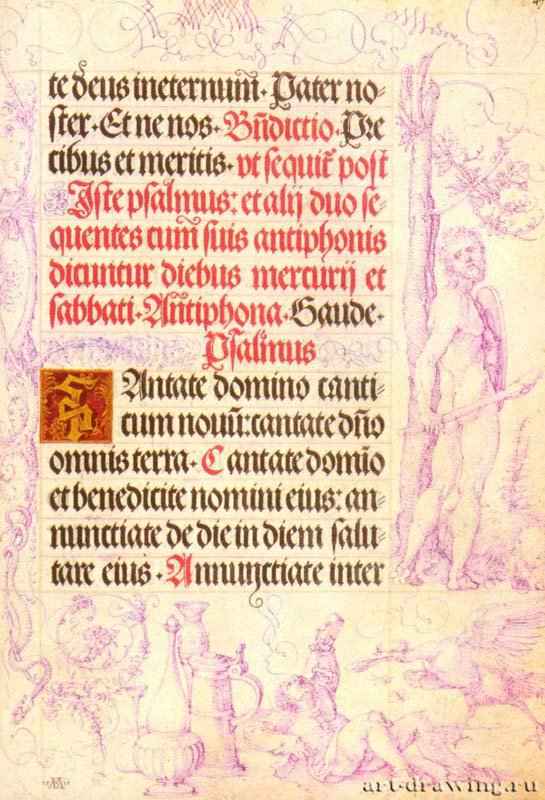 te deus ineternum̄. Pater no=
ster. Et ne nos. Bn̄dictio. Pre
cibus et meritis. vt sequit̃ post
Iste psalmus: et alij duo se=
quentes cum̄ suis antiphonis
dicuntur diebus mercurij et
sabbati. Añtiphona. Gaude.
Psalmus
CAntate domino canti=
cum nouũ: cantate dño
omnis terra. Cantate domĩo
et benedicite nomini eius: an=
nunctiate de die in diem salu=
tare eius. Annunctiate inter
art-drawing.ru